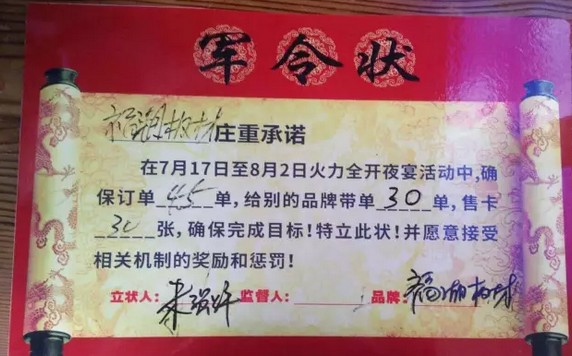 军令状
板材庄重承诺
在7月17日至8月2日火力全开夜宴活动中,确
保订单 45 单,给别的品牌带单 30 单,售卡
30 张,确保完成目标!特立此状!并愿意接受
相关机制的奖励和惩罚!
立状人: 监督人: 品牌: 板材